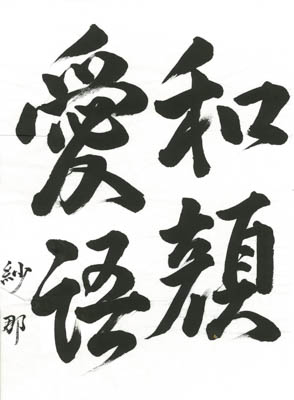 和顔
愛語
紗那